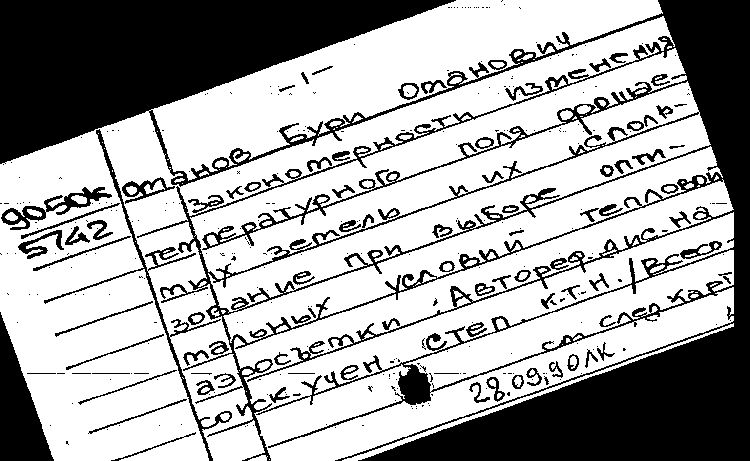 - 1 -
9050к Отанов Бури Отанович
5742 Закономерности изменения
температурного поля орошае-
мых земель и их исполь-
зование при выборе опти-
мальных условий тепловой
аэросъемки : Автореф. дис. на
соиск. учен. степ. к.т.н. / Всесо-
см след карт
28.09.90 ЛК.